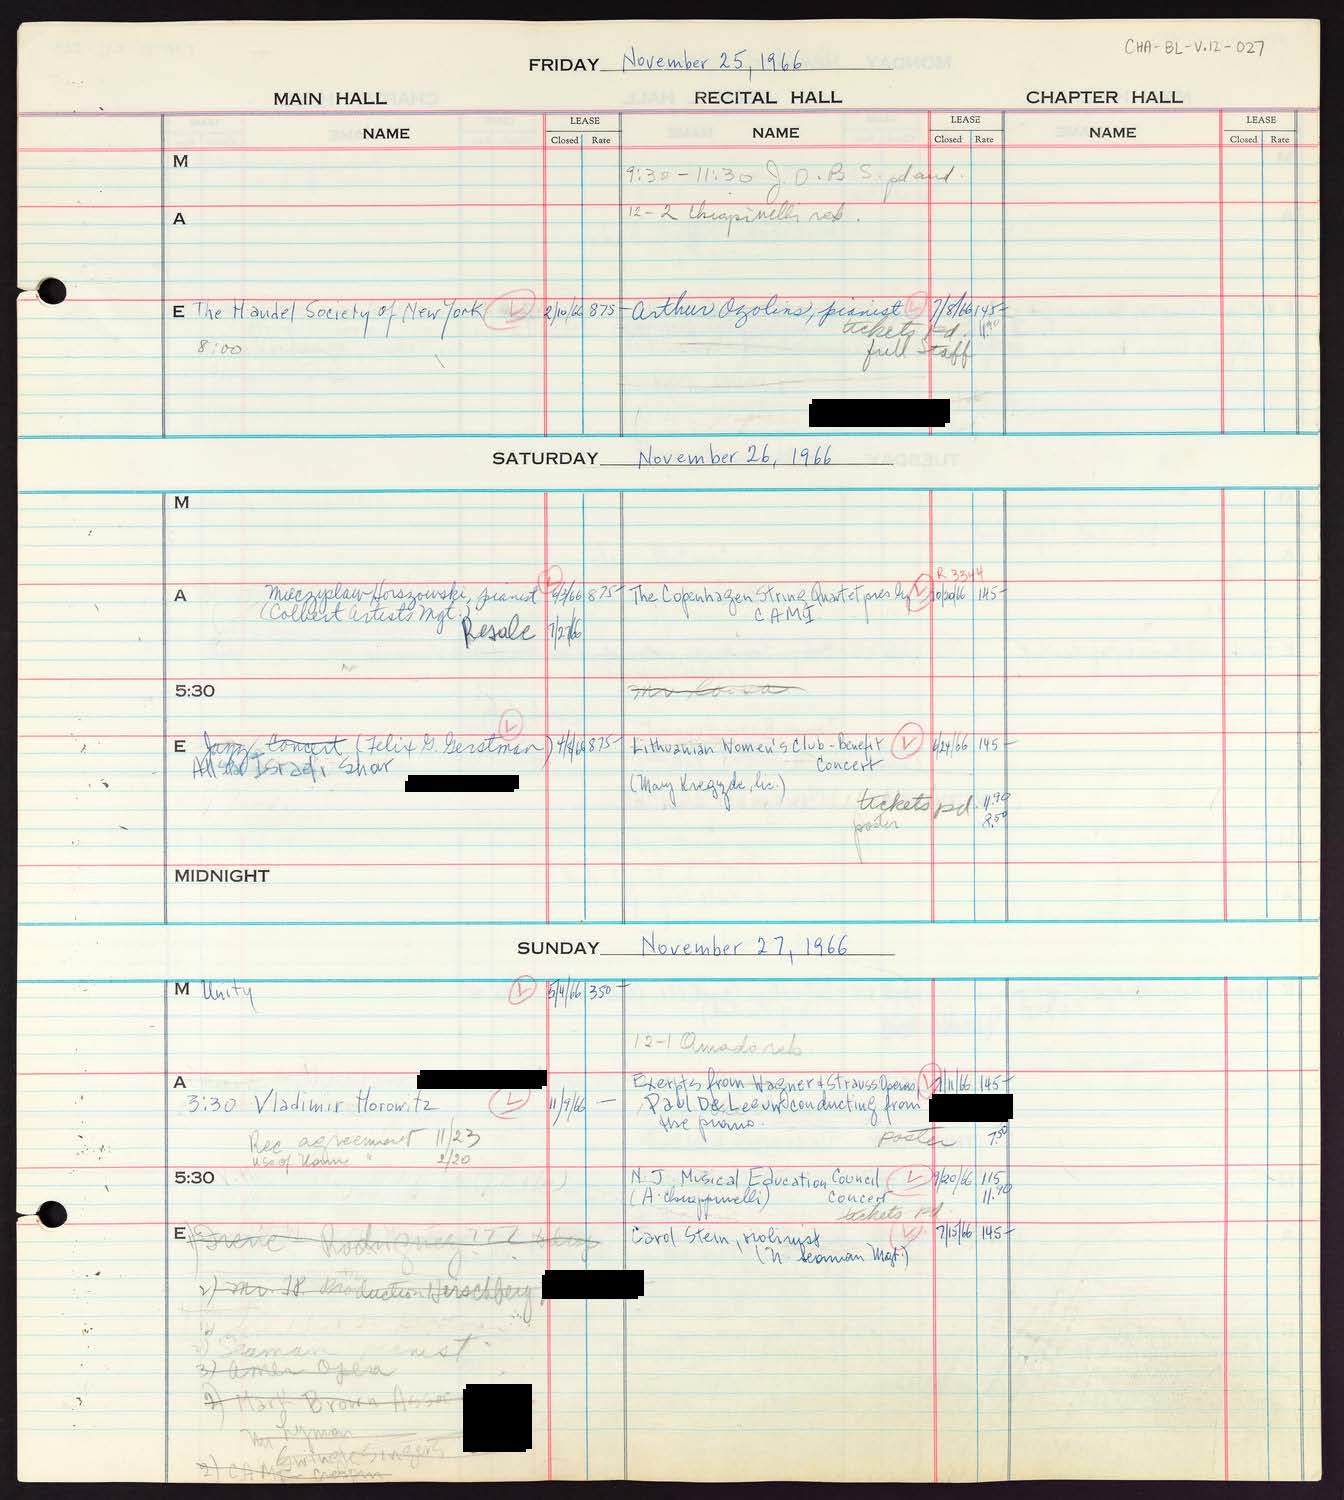 CHA-BL-V.12-027
FRIDAY November 25, 1966
MAIN HALL RECITAL HALL CHAPTER HALL
NAME LEASE NAME LEASE NAME LEASE
Closed Rate Closed Rate Closed Rate
M
9:30-11:30 J.O.B S.
A
12-2 Chiapinelli reh.
E The Handel Society of New York L 2/10/66 875- Arthur Ozolins, pianist L 7/8/66 145-
8:00
tickets pd. 11.90
full Staff
SATURDAY November 26, 1966
M
R 3344
A Mieczyslaw Horszowski, pianist L 875- The Copenhagen String Quartet pres by L 10/20/66 145-
(Colbert Artists Mgt.) CAMI
Resale 7/27/66
5:30
E Jazz Concert (Felix G. Gerstman) L 875- Lithuanian Women's Club-Benefit L 6/24/66 145-
All Star Israeli Show Concert
(Mary Kregzde, sec.)
tickets pd. 11.90
poster 8.50
MIDNIGHT
SUNDAY November 27, 1966
M Unity L 5/4/66 350-
12-1 Amado reh.
A
Exerpts from Wagner & Strauss Operas L 7/11/66 145-
3:30 Vladimir Horowitz L 11/9/66 - Paul De Leeuw conducting from
the piano.
Rec agreement 11/23
poster 7.50
use of Name " 2/20
5:30
N.J. Musical Education Council L 9/20/66 115
(A. Chiappinelli) Concert 11.90
tickets pd.
E Rodriguez ??? Carol Stein, violinist L 7/15/66 145-
(N. Seaman Mgt.)
2) Production Herschberg
Seaman
3) Amer Opera
Mark Brown Assoc
Mr Lyman
Swingle Singers
2) CAMI